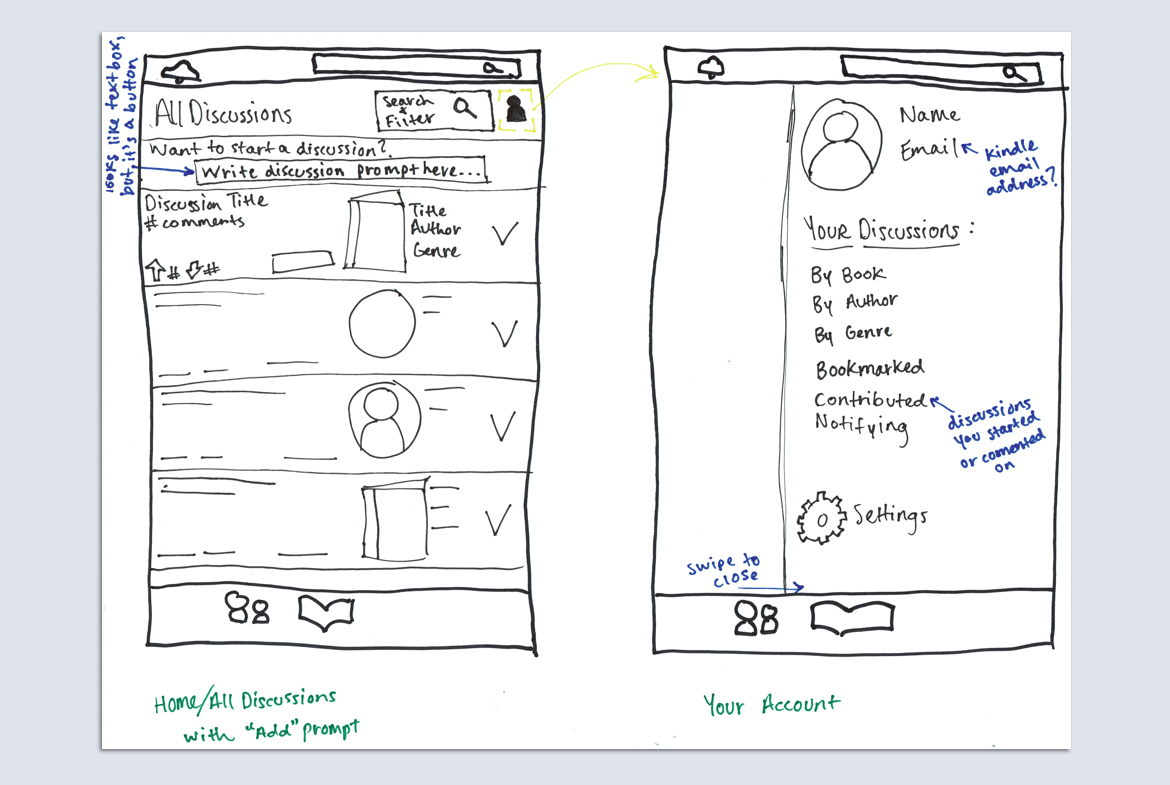 looks like text box,
but, it's a button
All Discussions
Search
+
Filter
Want to start a discussion?
Write discussion prompt here...
Discussion Title
# comments
# #
Title
Author
Genre
Home/All Discussions
with "Add" prompt
Name
Email
Kindle
email
address?
Your Discussions:
By Book
By Author
By Genre
Bookmarked
Contributed
Notifying
discussions
you started
or comented
on
Settings
swipe to
close
Your Account